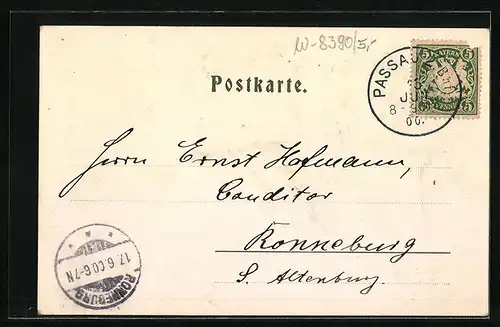 W-8390/5,-
Postkarte.
PASSAU
JU
8-
00.
BAYERN
5 5
5 PFENNIG 5
Herrn Ernst Hofmann,
Conditor
Ronneburg
S. Altenburg.
17.6.00.6-7N
RONNEBURG